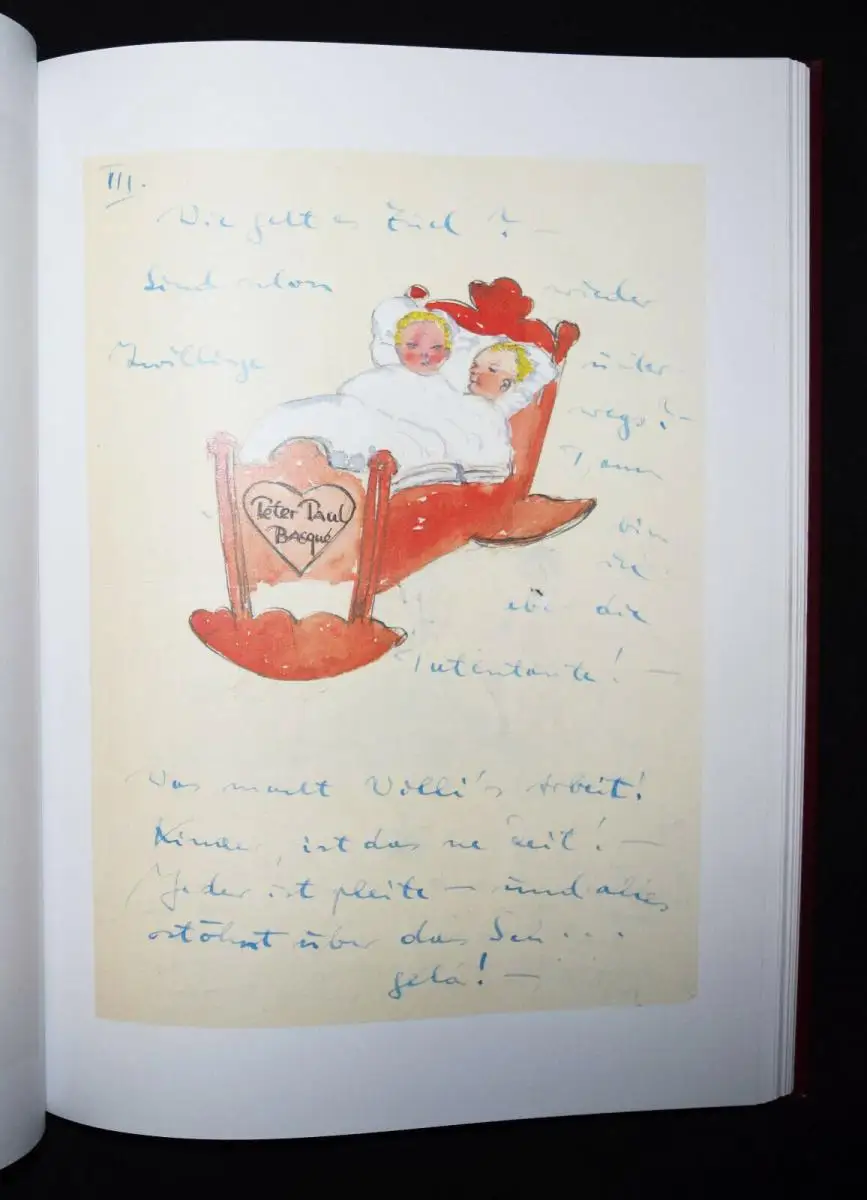 III.
Wie geht es Euch? –
Sind schon wieder
Zwillinge unter-
wegs? –
Dann
bin
ich
die
Patentante! –
Peter Paul
Bacqué
Was macht Willi's Arbeit!
Kinder, ist das ne Zeit! –
Jeder ist pleite – und alles
stöhnt über das
geld! –